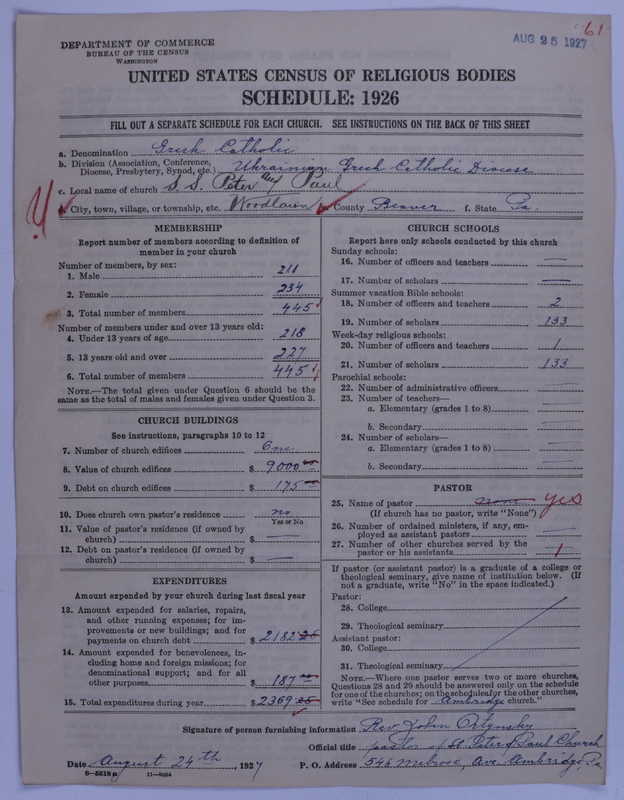 61
AUG 25 1927
DEPARTMENT OF COMMERCE
BUREAU OF THE CENSUS
WASHINGTON
UNITED STATES CENSUS OF RELIGIOUS BODIES
SCHEDULE: 1926
FILL OUT A SEPARATE SCHEDULE FOR EACH CHURCH. SEE INSTRUCTIONS ON THE BACK OF THIS SHEET
a. Denomination Greek Catholic
b. Division (Association, Conference, Diocese, Presbytery, Synod, etc.) Ukrainian Greek Catholic Diocese
c. Local name of church S S. Peter and Paul
d. City, town, village, or township, etc. Woodlawn e. County Beaver f. State Pa.
MEMBERSHIP
Report number of members according to definition of
member in your church
Number of members, by sex:
1. Male 211
2. Female 234
3. Total number of members 445
Number of members under and over 13 years old:
4. Under 13 years of age 218
5. 13 years old and over 227
6. Total number of members 445
NOTE.—The total given under Question 6 should be the
same as the total of males and females given under Question 3.
CHURCH BUILDINGS
See instructions, paragraphs 10 to 12
7. Number of church edifices One
8. Value of church edifices $ 9000 00
9. Debt on church edifices $ 175 00
10. Does church own pastor's residence? no
Yes or No
11. Value of pastor's residence (if owned by
church) $ —
12. Debt on pastor's residence (if owned by
church) $ —
EXPENDITURES
Amount expended by your church during last fiscal year
13. Amount expended for salaries, repairs,
and other running expenses; for im-
provements or new buildings; and for
payments on church debt $ 2182 25
14. Amount expended for benevolences, in-
cluding home and foreign missions; for
denominational support; and for all
other purposes $ 187 00
15. Total expenditures during year $ 2369 25
CHURCH SCHOOLS
Report here only schools conducted by this church
Sunday schools:
16. Number of officers and teachers —
17. Number of scholars —
Summer vacation Bible schools:
18. Number of officers and teachers 2
19. Number of scholars 133
Week-day religious schools:
20. Number of officers and teachers 1
21. Number of scholars 133
Parochial schools:
22. Number of administrative officers —
23. Number of teachers—
a. Elementary (grades 1 to 8) —
b. Secondary —
24. Number of scholars—
a. Elementary (grades 1 to 8) —
b. Secondary —
PASTOR
25. Name of pastor none yes
(If church has no pastor, write "None")
26. Number of ordained ministers, if any, em-
ployed as assistant pastors —
27. Number of other churches served by the
pastor or his assistants 1
If pastor (or assistant pastor) is a graduate of a college or
theological seminary, give name of institution below. (If
not a graduate, write "No" in the space indicated.)
Pastor:
28. College
29. Theological seminary
Assistant pastor:
30. College
31. Theological seminary
NOTE.—Where one pastor serves two or more churches,
Questions 28 and 29 should be answered only on the schedule
for one of the churches; on the schedules for the other churches,
write "See schedule for Ambridge church."
Signature of person furnishing information Rev. John Ortynsky
Official title pastor of St. Peter & Paul Church
Date August 24th, 1927 P. O. Address 546 Melrose, Ave. Ambridge, Pa
8—5518a 11—9054